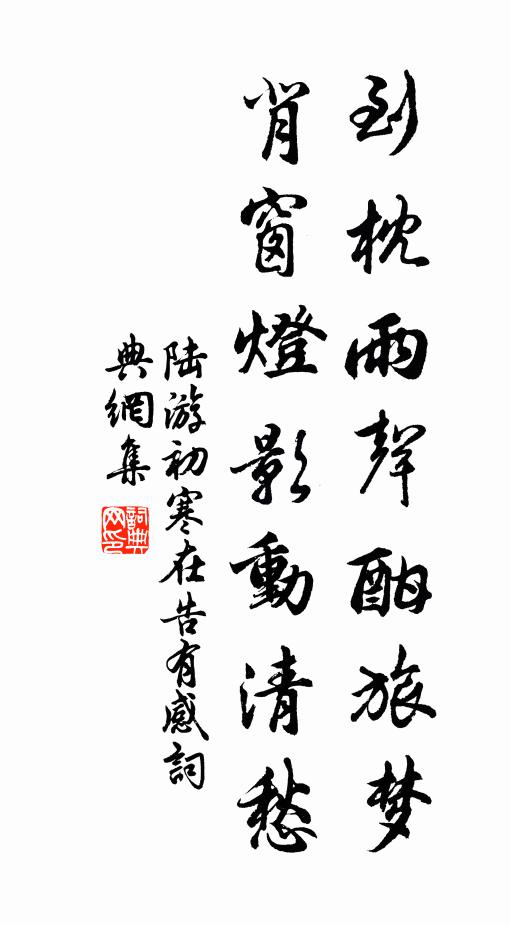 到枕雨聲酣旅梦
背窗燈影動清愁
陆游初寒在告有感詞
典網集
詞典網印